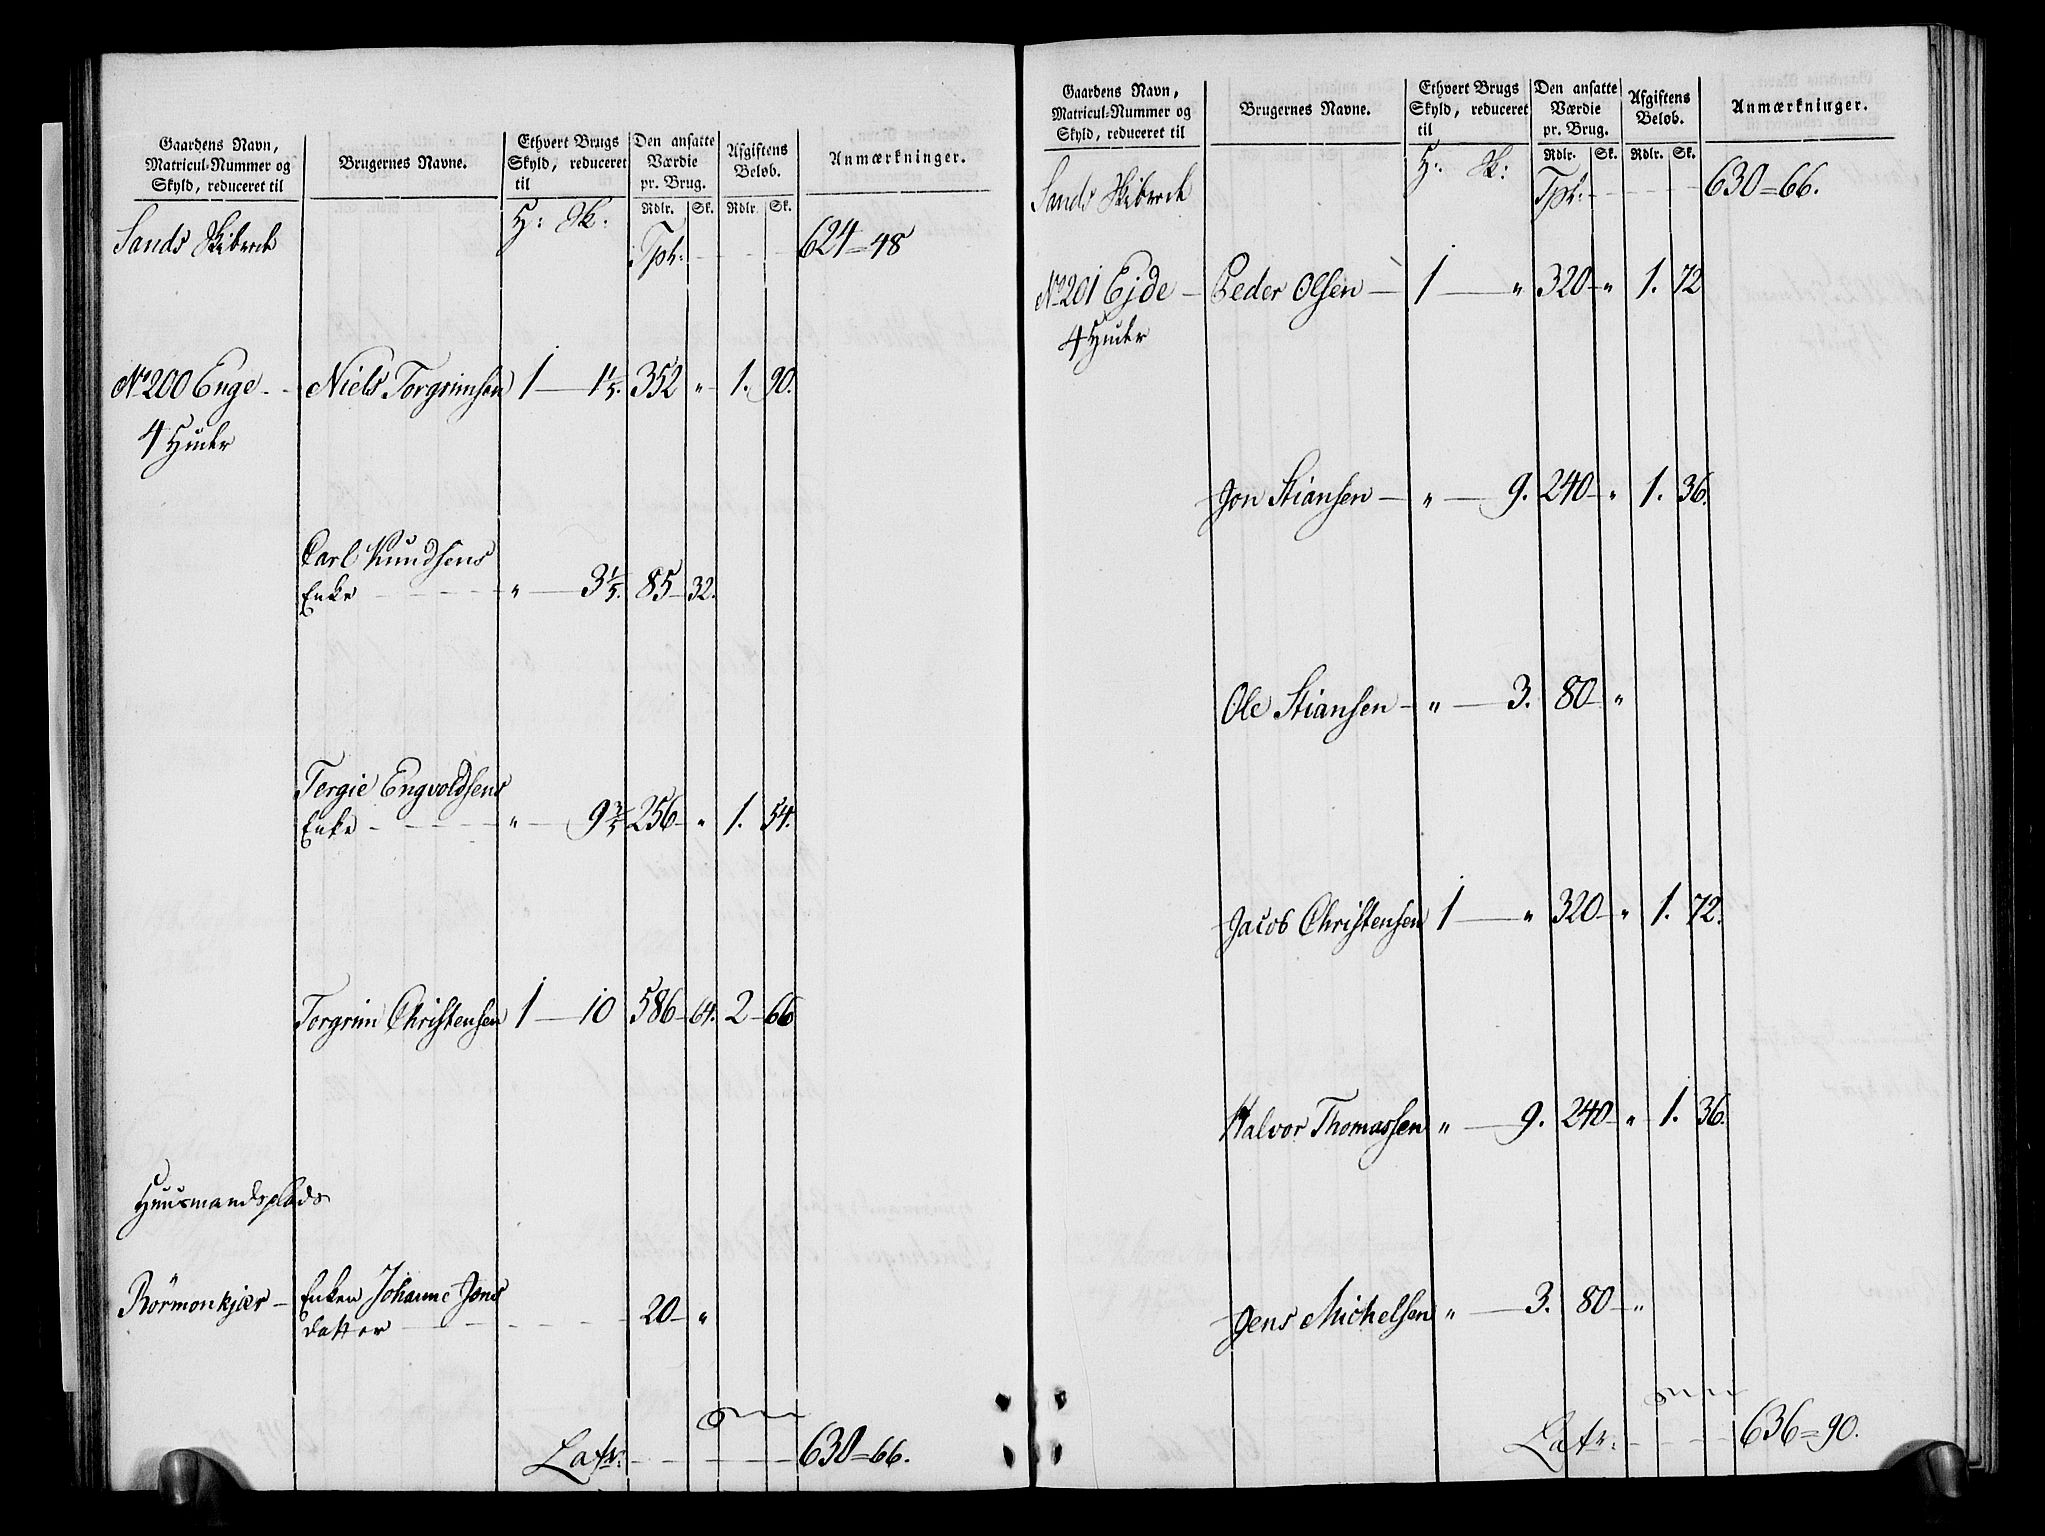 Gaardens Navn, Matricul-Nummer og Skyld, reduceret til
Brugernes Navne.
Ethvert Brugs Skyld, reduceret til
Den ansatte Værdie pr. Brug.
Afgiftens Beløb.
Anmærkninger.
H: Sk: Rdlr. Sk. Rdlr. Sk.
Sands Skibrede Tpt: - - - 624=48
No 200 Enge - - Niels Torgrimsen 1 — 1 1/5. 352 " 1. 90.
4 Huder
Carl Knudsens
Enke - - - - " — 3 1/5. 85 — 32.
Tergie Engvoldsens
Enke - - - - " — 9 3/5 256 — " 1. 54.
Torgrim Christensen 1 — 10 586 — 64. 2 — 66
Huusmandsplads
Rörmonkjær — Enken Johanne Jons
datter - - - - 20 — "
Latr: - - - - 630=66.
Gaardens Navn, Matricul-Nummer og Skyld, reduceret til
Brugernes Navne.
Ethvert Brugs Skyld, reduceret til
Den ansatte Værdie pr. Brug.
Afgiftens Beløb.
Anmærkninger.
H: Sk: Rdlr. Sk. Rdlr. Sk.
Sands Skibrede Tpt: - - - 630=66.
No 201 Ejde — Peder Olsen — 1 — " 320 — " 1. 72
4 Huder
Jon Stiansen — " — 9. 240 — " 1. 36.
Ole Stiansen — " — 3. 80 — "
Jacob Christensen 1 — " 320 — " 1. 72.
Halvor Thomassen " — 9. 240 — " 1. 36.
Jens Michelsen " — 3. 80 — "
Latr: - - - - 636=90.